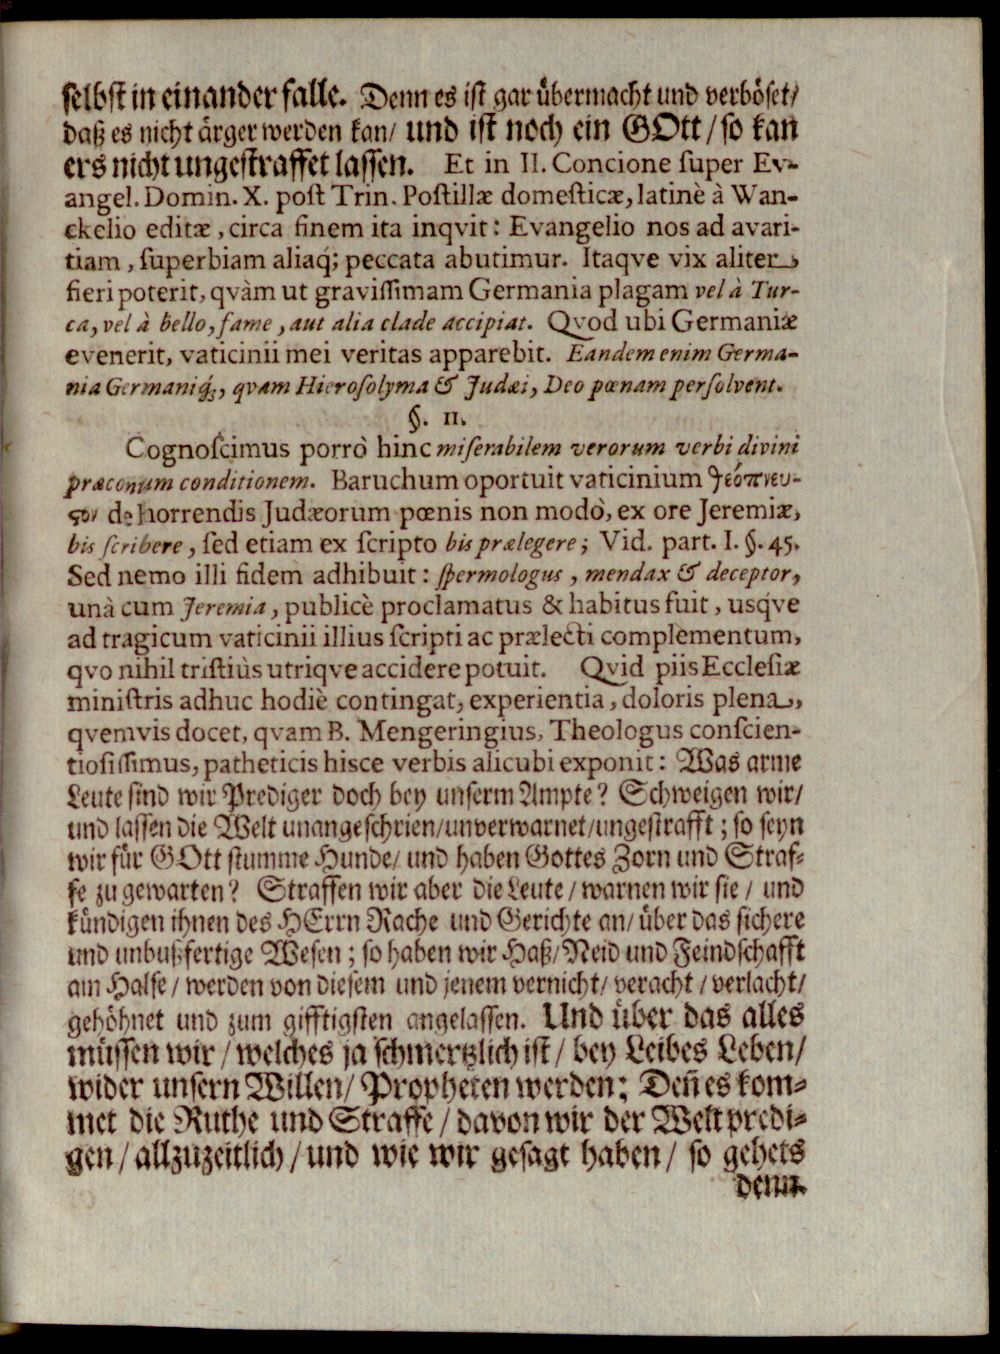 ſelbſt in einander falle. Denn es iſt gar uͤbermacht und verboͤſet/
daß es nicht aͤrger werden kan/ und iſt noch ein GOtt / ſo kan
ers nicht ungeſtraffet laſſen. Et in II. Concione ſuper Ev-
angel. Domin. X. poſt Trin. Poſtillæ domeſticæ, latinè à Wan-
ckelio editæ, circa finem ita inqvit: Evangelio nos ad avari-
tiam, ſuperbiam aliaq́; peccata abutimur. Itaqve vix aliter
fieri poterit, qvàm ut graviſſimam Germania plagam vel à Tur-
ca, vel à bello, fame, aut alia clade accipiat. Qvod ubi Germaniæ
evenerit, vaticinii mei veritas apparebit. Eandem enim Germa-
nia Germaniq́;, qvam Hieroſolyma & Judæi, Deo pœnam perſolvent.
§. II.
Cognoſcimus porrò hinc miſerabilem verorum verbi divini
præconum conditionem. Baruchum oportuit vaticinium θεόπνευ-
ϛον de horrendis Judæorum pœnis non modò, ex ore Jeremiæ,
bis ſcribere, ſed etiam ex ſcripto bis prælegere; Vid. part. I. §. 45.
Sed nemo illi fidem adhibuit: ſpermologus, mendax & deceptor,
unà cum Jeremia, publicè proclamatus & habitus fuit, usq́ve
ad tragicum vaticinii illius ſcripti ac prælecti complementum,
qvo nihil triſtiùs utriqve accidere potuit. Qvid piis Eccleſiæ
miniſtris adhuc hodiè contingat, experientia, doloris plena,
qvemvis docet, qvam B. Mengeringius, Theologus conſcien-
tioſiſſimus, patheticis hisce verbis alicubi exponit: Was arme
Leute ſind wir Prediger doch bey unſerm Ampte? Schweigen wir/
und laſſen die Welt unangeſchrien/ unverwarnet/ ungeſtrafft; ſo ſeyn
wir fuͤr GOtt ſtumme Hunde/ und haben Gottes Zorn und Straf-
fe zu gewarten? Straffen wir aber die Leute / warnen wir ſie / und
kuͤndigen ihnen des HErrn Rache und Gerichte an/ uͤber das ſichere
und unbußfertige Weſen; ſo haben wir Haß/ Neid und Feindſchafft
am Halſe / werden von dieſem und jenem vernicht/ veracht / verlacht/
gehoͤhnet und zum gifftigſten angelaſſen. Und uͤber das alles
muͤſſen wir / welches ja ſchmertzlich iſt / bey Leibes Leben/
wider unſern Willen/ Propheten werden: Deñ es kom-
met die Ruthe und Straffe / davon wir der Welt predi-
gen / allzuzeitlich / und wie wir geſagt haben / ſo gehets
denn.